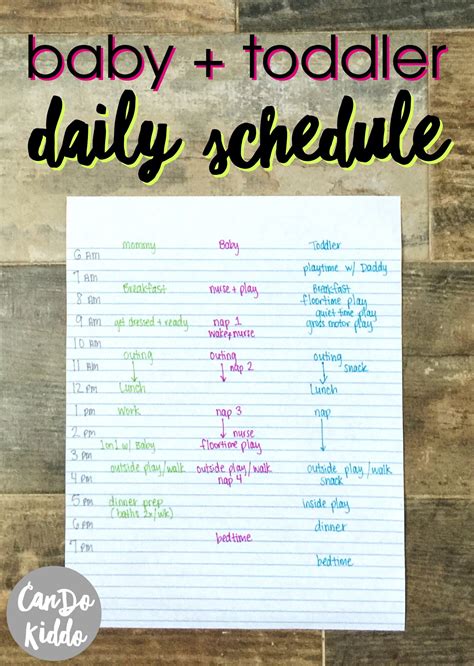 baby + toddler
daily schedule
Mommy Baby Toddler
6 AM
playtime w/ Daddy
7 AM
Breakfast nurse + play Breakfast
8 AM floortime play
quiet time play
9 AM get dressed + ready nap 1 gross motor play
wake + nurse
10 AM
outing outing outing
11 AM nap 2 snack
12 PM Lunch Lunch
1 PM Work nap 3 nap
2 PM nurse
1 on 1 w/ Baby floortime play
3 PM
outside play/walk outside play/walk outside play/walk
4 PM nap 4 snack
5 PM dinner prep inside play
(baths 2x/wk)
6 PM dinner
7 PM bedtime
bedtime
CanDo
Kiddo